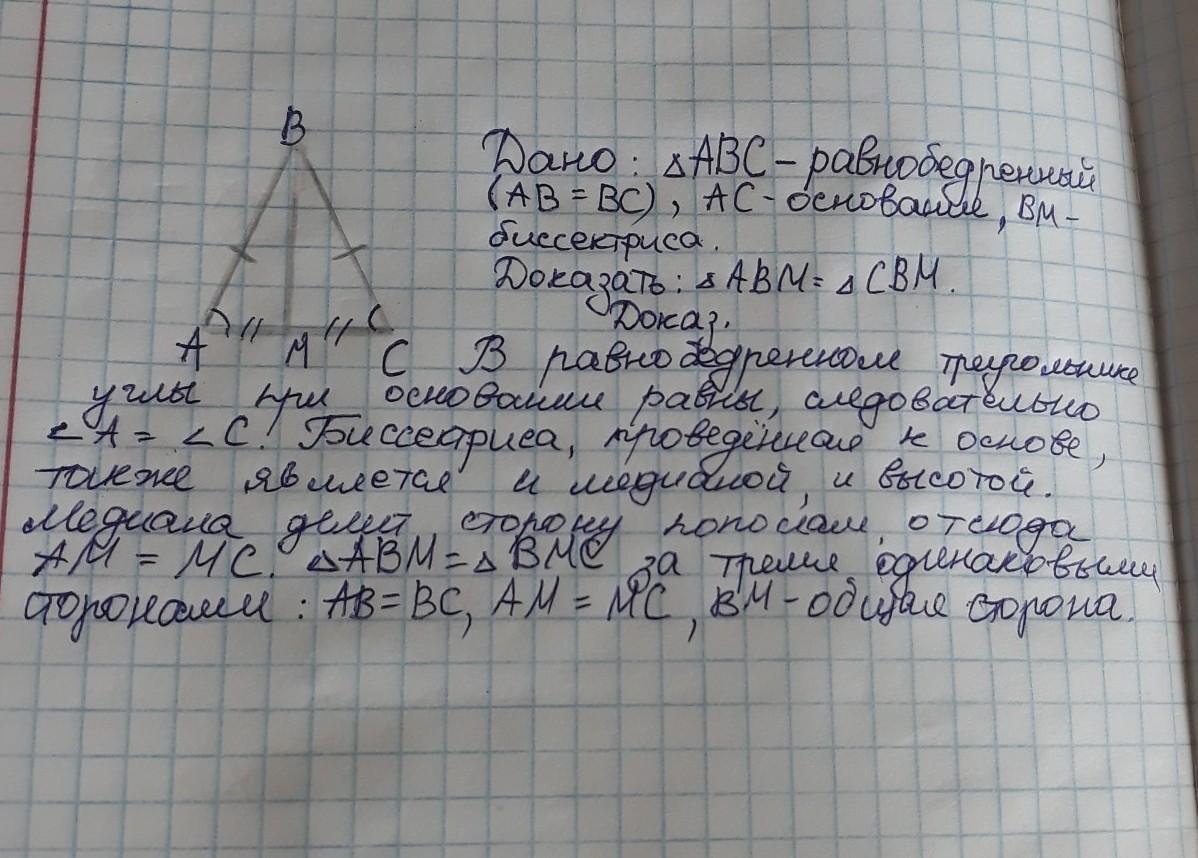 B
Дано: △ABC – равнобедренный
(AB = BC), AC - основание, BM -
биссектриса.
Доказать: △ABM = △CBM.
Доказ.
A M C
В равнобедренном треугольнике
углы при основании равны, следовательно
∠A = ∠C. Биссектриса, проведённая к основе,
также является и медианой, и высотой.
Медиана делит сторону пополам, отсюда
AM = MC. △ABM = △BMC за тремя одинаковыми
сторонами: AB = BC, AM = MC, BM - общая сторона.